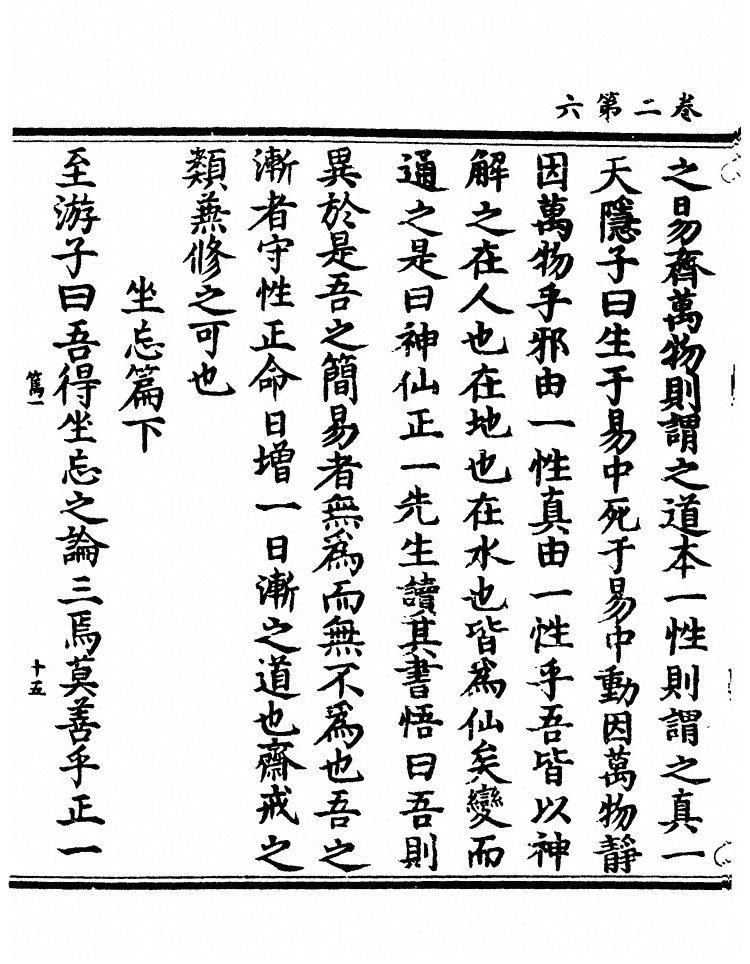 卷二第六
之易齊萬物則謂之道本一性則謂之真一
天隱子曰生于易中死于易中動因萬物靜
因萬物乎邪由一性真由一性乎吾皆以神
解之在人也在地也在水也皆為仙矣變而
通之是曰神仙正一先生讀其書悟曰吾則
異於是吾之簡易者無為而無不為也吾之
漸者守性正命日增一日漸之道也齋戒之
類兼修之可也
坐忘篇下
至游子曰吾得坐忘之論三焉莫善乎正一
篤一
十五